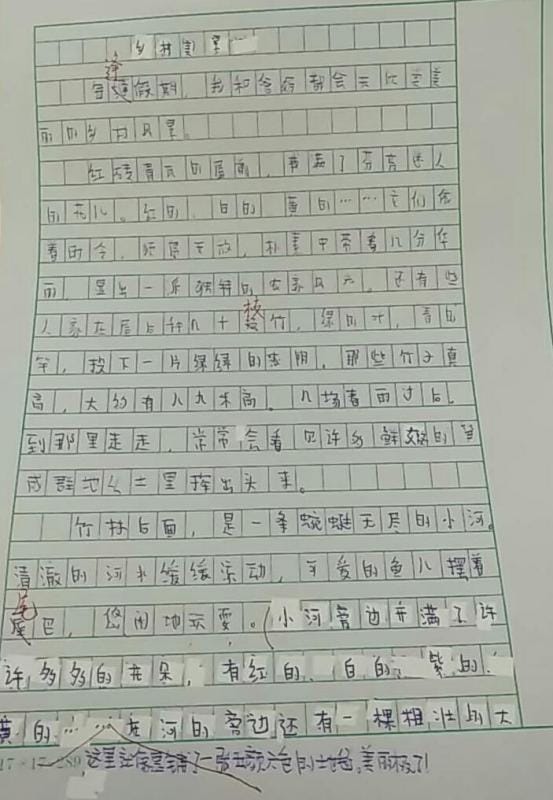 乡村美景
每逢假期，我和爸爸都会去欣赏美
丽的乡村风景。
红砖青瓦的屋前，开满了芬芳迷人
的花儿。红的、白的、黄的……它们
春而
丽，显出一派独特的农家风光。还有些
人家在屋后种几十枝竹，绿的叶，青的
竿，投下一片绿绿的浓阴，那些竹子真
高，大约有八九米高。几场春雨过后，
到那里走走，常常会看见许多鲜嫩的笋
成群地从土里探出头来。
竹林后面，是一条蜿蜒无尽的小河。
清澈的河水缓缓流动，可爱的鱼儿摆着
尾巴，悠闲地玩耍。小河旁边开满了许
许多多的花朵，有红的、白的、紫的、
黄的……在河的旁边还有一棵粗壮的大
这里铺了一张五颜六色的地毯，美丽极了！